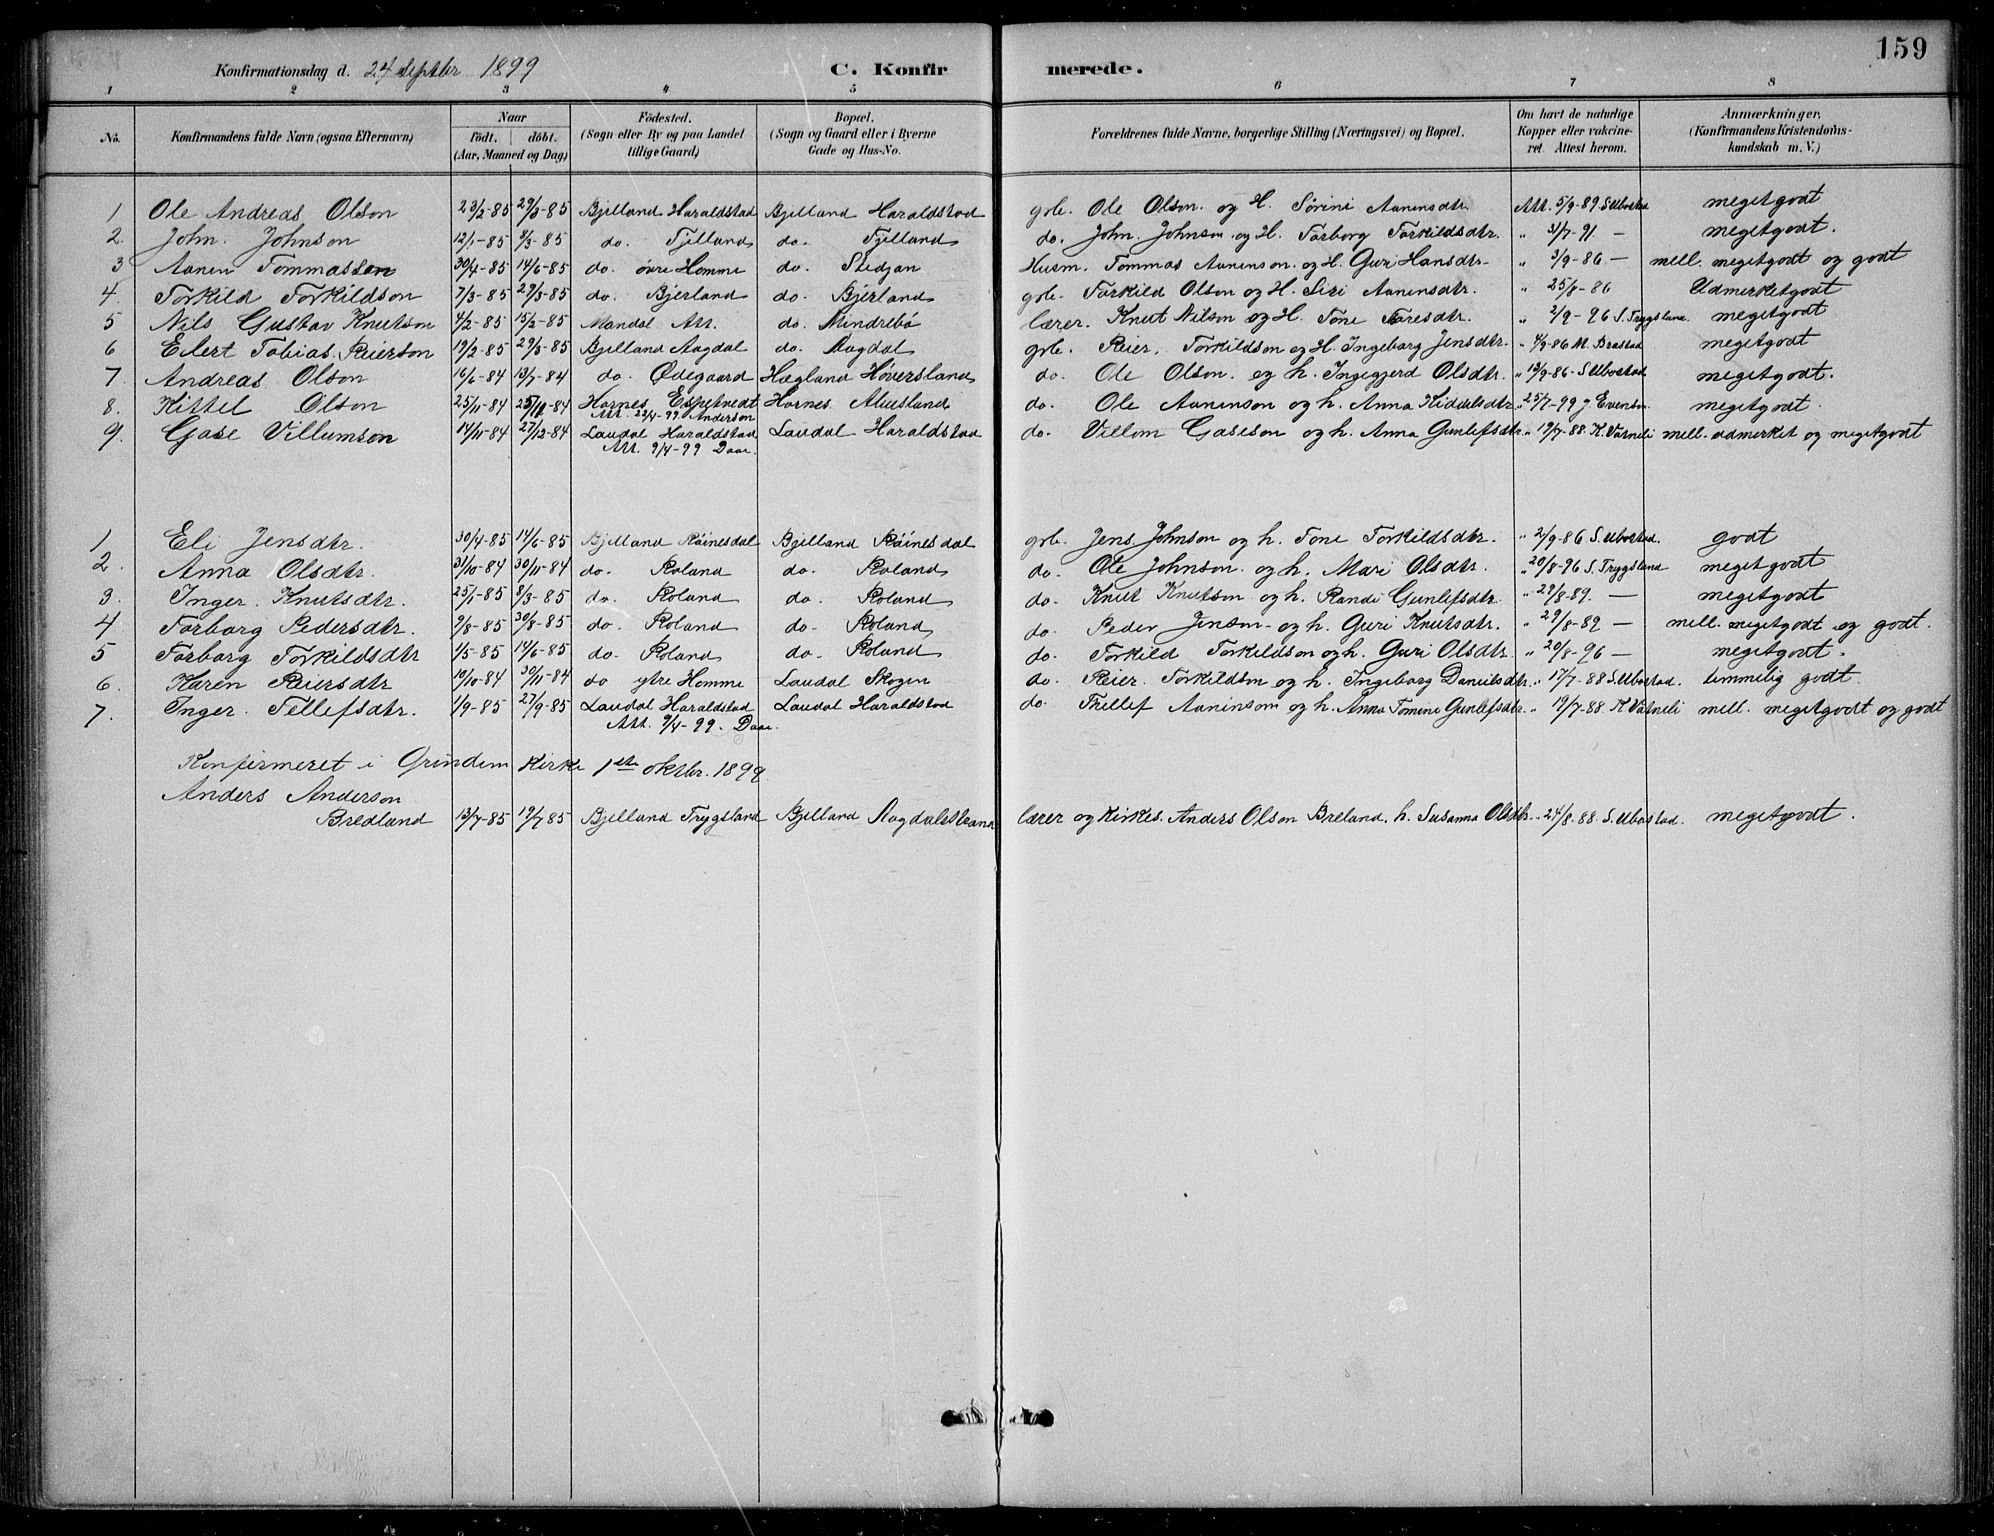 159
Konfirmationsdag d. 24 Septbr 1899 C. Konfirmerede.
1 2 3 4 5 6 7 8
No. Konfirmandens fulde Navn (ogsaa Efternavn) Naar født. døbt. (Aar, Maaned og Dag) Fødested. (Sogn eller By og paa Landet tillige Gaard) Bopæl. (Sogn og Gaard eller i Byerne Gade og Hus-No. Forældrenes fulde Navne, borgerlige Stilling (Næringsvei) og Bopæl. Om havt de naturlige Kopper eller vakcineret. Attest herom. Anmærkninger. (Konfirmandens Kristendomskundskab m. V.)
1 Ole Andreas Olson 23/2-85 29/3-85 Bjelland Haraldstad Bjelland Haraldstad gbr. Ole Olson og H. Sørine Aanensdtr. Att. 5/9-89 S Ubostad meget godt
2. John. Johnson 12/1-85 8/3-85 do. Fjelland do. Fjelland do. John. Johnson og H. Tarborg Torkildsdtr. " 3/7-91 - meget godt.
3 Aanen Tommasson 30/4-85 14/6-85 do. øvre Homme do. Stedjan Husm. Tommas Aanenson. og H. Guri Hansdtr- " 3/9-86 - mell. megetgodt og godt
4. Torkild Torkildson 7/3-85 29/3-85 do. Bjerland do. Bjerland gbr. Torkild Olson og H. Siri Aanensdtr. " 25/8-86 Udmerketgodt
5 Nils Gustav Knutson 4/2-85 15/2-85 Mandal Att. do. Mindrebø lærer. Knut Nilson og H. Tone Taresdtr. " 2/9-96 S. Trygsland megetgodt
6 Edert Tobias Reierson 19/2-85 29/3-85 Bjelland Aagdal do. Aagdal gbr. Reier. Torkildson og H. Ingeborg Jensdtr. " 4/9-86 M. Brastad megetgodt
7. Andreas Olson 16/6-84 13/7-84 do. Ødegaard Hægland Høversland do. Ole Olson. og h. Ingegjerd Olsdtr. " 13/9-86 S Ubostad megetgodt.
8. Kittel Olson 25/11-84 25/12-84 Hornes Espetvedt Hornes Aluesland do. Ole Aanenson og h. Anna Kiddelsdtr. " 25/7-99 J Evenson megetgodt.
Att. 22/4-99 Anderson
9. Gase Villumson 14/11-84 27/12-84 Laudal Haraldstad Laudal Haraldstad do. Villom Gaseson og h. Anna Gunlefsdtr. " 19/7-88 K. Vatneli mell. udmerket og megetgodt
Att. 9/4-99 Daae.
1 Eli Jensdtr. 30/4-85 14/6-85 Bjelland Røinesdal Bjelland Røinesdal gbr. Jens Johnson og h. Tone Torkildsdtr. " 2/9-86 S. Ubostad. godt
2. Anna Olsdtr. 31/10-84 30/11-84 do. Roland do. Roland do. Ole Johnson. og h. Mari Olsdtr. " 20/8-96 S. Trygsland megetgodt
3. Inger. Knutsdtr. 25/1-85 8/3-85 do. Roland do. Roland do. Knut Knutson og h. Randi Gunlefsdtr. " 29/8-89. - megetgodt
4 Tarborg Pedersdtr. 9/8-85 30/8-85 do. Roland do. Roland do. Peder Jenson- og h. Guri Knutsdtr. " 29/8-89 - mell. megetgodt og godt.
5 Tarborg Torkildsdtr 1/5-85 14/6-85 do. Roland do. Roland do. Torkild Torkildson og h. Guri Olsdtr. " 20/8-96 - megetgodt.
6. Karen Reiersdtr 10/10-84 30/11-84 do ytre Homme Laudal Skogen do. Reier. Torkildson og h. Ingeborg Danielsdtr. " 17/7-88 S Ubostad. temmelig godt.
7. Inger. Tellefsdtr. 1/9-85 27/9-85 Laudal Haraldstad Laudal Haraldstad do. Thellef Aanenson og h. Anna Tomine Gunlefsdtr. " 19/7-88 K Vatneli mell. megetgodt og godt
Att. 9/4-99. Daae.
Konfirmeret i Grindem Kirke 1ste oktbr. 1899
Anders Anderson
Bredland 13/7-85 19/7 85 Bjelland Trygsland Bjelland Aagdalstrand lærer og Kirkes. Anders Olson Breland. h. Susanna Olsdtr. " 24/8-88. S. Ubostad. megetgodt.